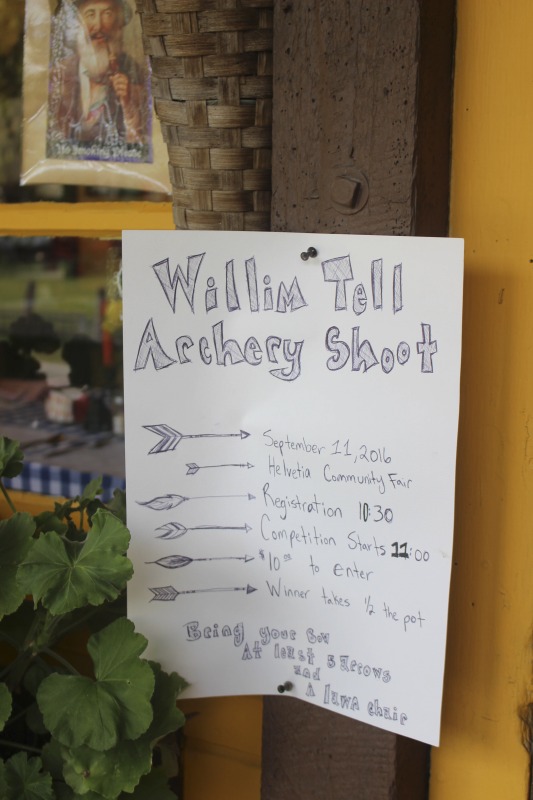 No Smoking Please
Willim Tell
Archery Shoot
September 11, 2016
Helvetia Community Fair
Registration 10:30
Competition Starts 11:00
$10.00 to enter
Winner takes 1/2 the pot
Bring your Bow
At least 3 Arrows
and
A lawn chair